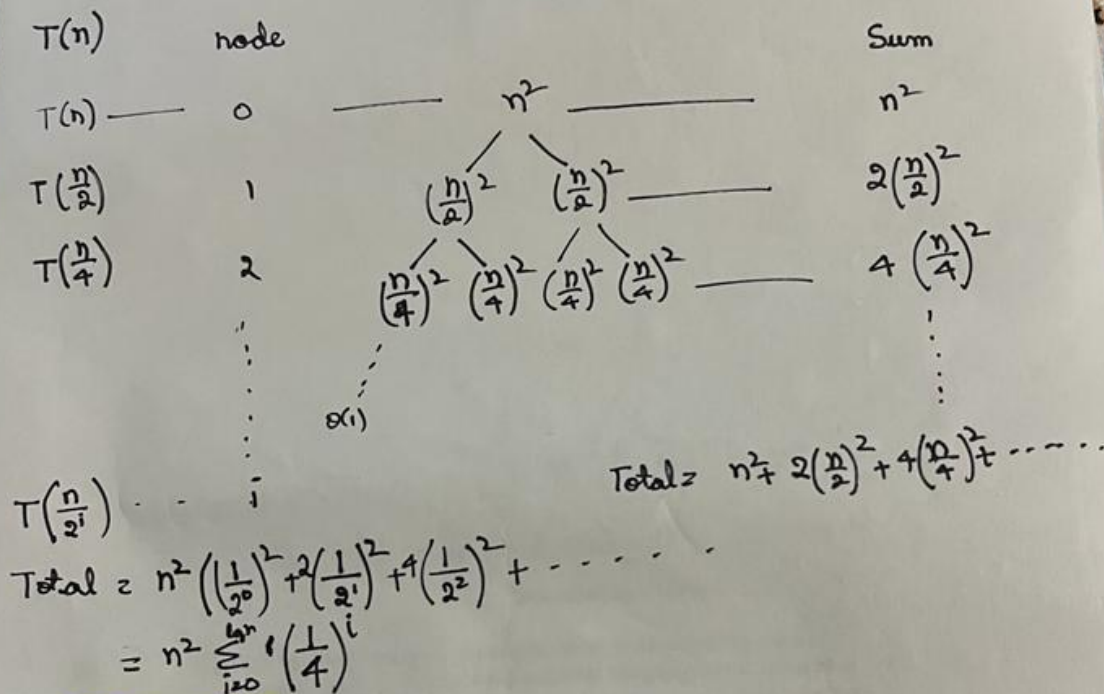 T(n) node Sum
T(n) 0 n² n²
T(n/2) 1 (n/2)² (n/2)² 2(n/2)²
T(n/4) 2 (n/4)² (n/4)² (n/4)² (n/4)² 4(n/4)²
θ(1)
Total = n² + 2(n/2)² + 4(n/4)² + ......
T(n/2ⁱ) . . i
Total = n²((1/2⁰)² + 2(1/2¹)² + 4(1/2²)² + ......
= n² Σ i=0 (1/4)ⁱ